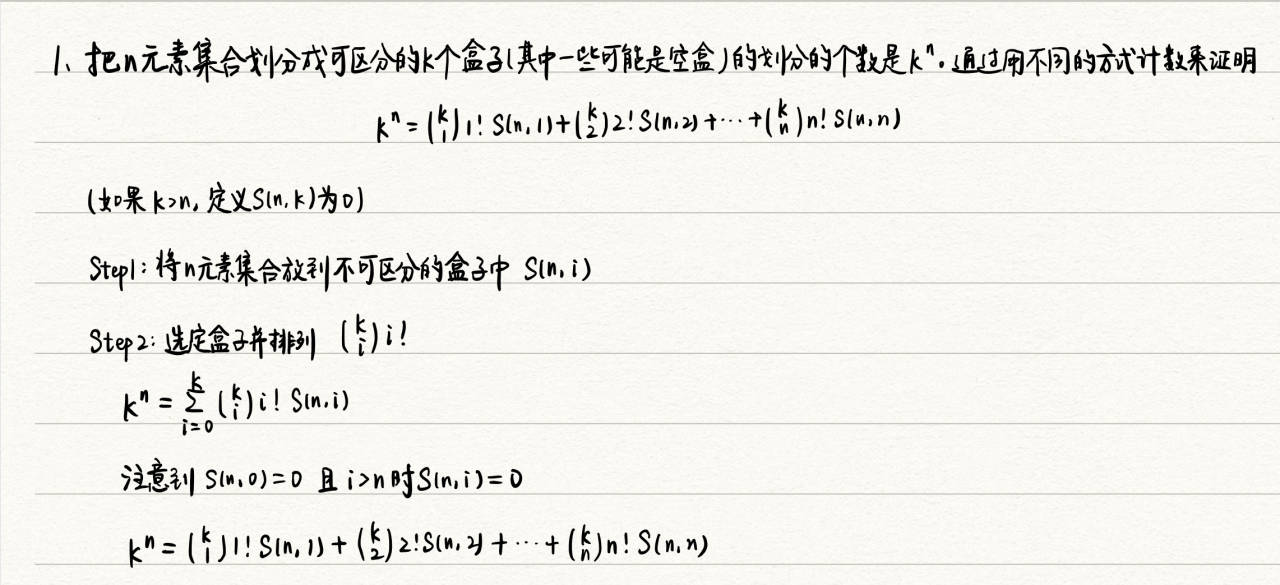 1、把n元素集合划分成可区分的k个盒子(其中一些可能是空盒)的划分的个数是kⁿ。通过用不同的方式计数来证明
kⁿ = (k 1) 1! S(n,1) + (k 2) 2! S(n,2) + ··· + (k n) n! S(n,n)
(如果 k>n, 定义S(n,k)为0)
Step1: 将n元素集合放到不可区分的盒子中 S(n,i)
Step2: 选定盒子并排列 (k i) i!
kⁿ = ∑_{i=0}^{k} (k i) i! S(n,i)
注意到 S(n,0)=0 且 i>n时S(n,i)=0
kⁿ = (k 1) 1! S(n,1) + (k 2) 2! S(n,2) + ··· + (k n) n! S(n,n)